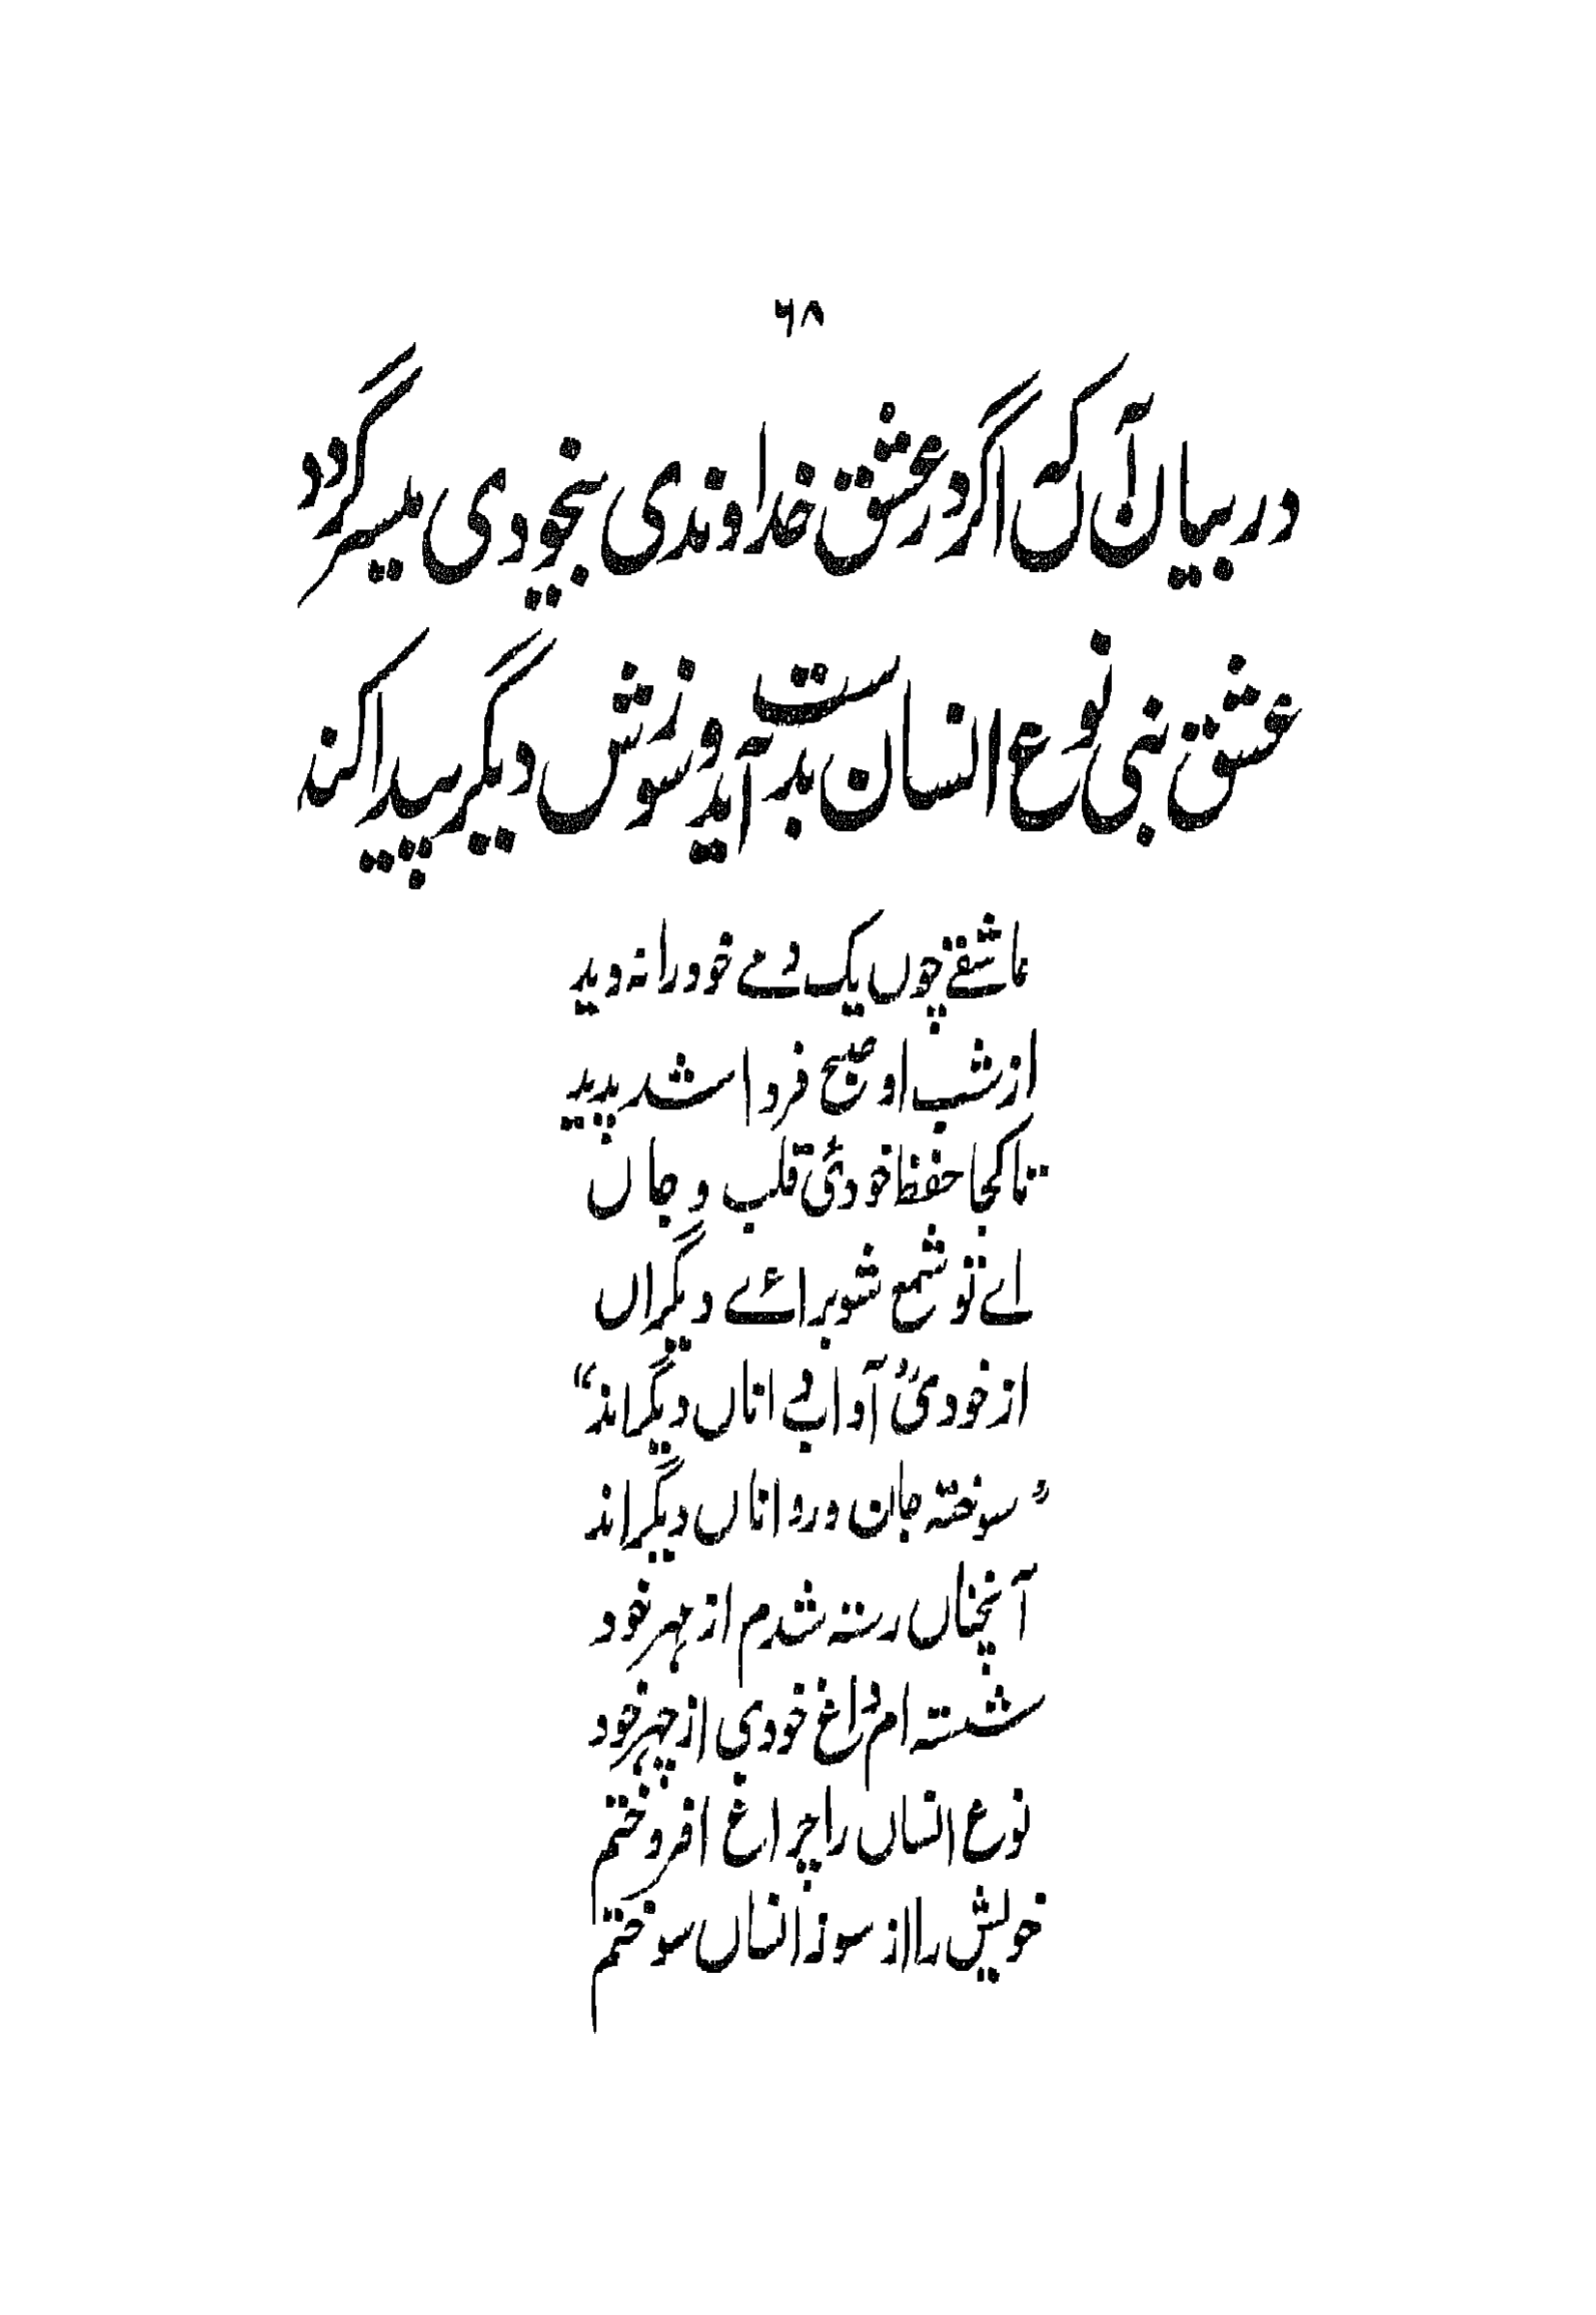 ۶۸
در بیان آں کہ اگر در عشق خداوندی بیخودی میسر گردد
عشق بنی نوع انسان بدست آید و سوزش دیگر پیدا کند
عاشقے چوں یک دمے خود را نہ دید
از شب او صبح فردا شد پدید
تا کجا حفظ خودیٔ قلب و جاں
اے تو شمع شو برائے دیگراں
از خودیٔ" آداب داناں دیگر اند"
"سوختہ جان و رواناں دیگر اند
آنچناں رستہ شدم از مہر خود
شستہ ام داغ خودی از چہر خود
نوع انساں را چراغ افروختم
خویش را از سوز انساں سوختم